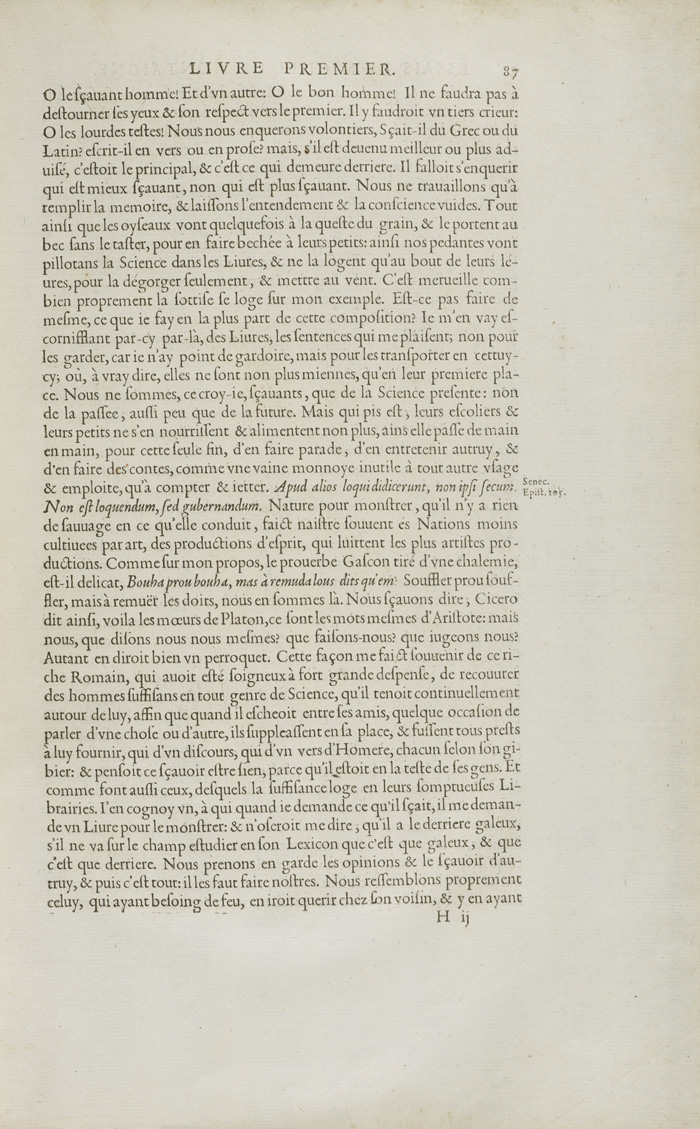 LIVRE PREMIER. 87
O le sçauant homme! Et d'vn autre: O le bon homme! Il ne faudra pas à
destourner ses yeux & son respect vers le premier. Il y faudroit vn tiers crieur:
O les lourdes testes! Nous nous enquerons volontiers, Sçait-il du Grec ou du
Latin? escrit-il en vers ou en prose? mais, s'il est deuenu meilleur ou plus ad-
uisé, c'estoit le principal, & c'est ce qui demeure derriere. Il falloit s'enquerir
qui est mieux sçauant, non qui est plus sçauant. Nous ne trauaillons qu'à
remplir la memoire, & laissons l'entendement & la conscience vuides. Tout
ainsi que les oyseaux vont quelquefois à la queste du grain, & le portent au
bec sans le taster, pour en faire bechée à leurs petits: ainsi nos pedantes vont
pillotans la Science dans les Liures, & ne la logent qu'au bout de leurs lé-
ures, pour la dégorger seulement, & mettre au vent. C'est merueille com-
bien proprement la sottise se loge sur mon exemple. Est-ce pas faire de
mesme, ce que ie fay en la plus part de cette composition? Ie m'en vay es-
cornifflant par-cy par-là, des Liures, les sentences qui me plaisent; non pour
les garder, car ie n'ay point de gardoire, mais pour les transporter en cettuy-
cy; où, à vray dire, elles ne sont non plus miennes, qu'en leur premiere pla-
ce. Nous ne sommes, ce croy-ie, sçauants, que de la Science presente: non
de la passee, aussi peu que de la future. Mais qui pis est, leurs escoliers &
leurs petits ne s'en nourrissent & alimentent non plus, ains elle passe de main
en main, pour cette seule fin, d'en faire parade, d'en entretenir autruy, &
d'en faire des contes, comme vne vaine monnoye inutile à tout autre vsage
& emploite, qu'à compter & ietter. Apud alios loqui didicerunt, non ipsi secum.
Senec.
Epist. 105.
Non est loquendum, sed gubernandum. Nature pour monstrer, qu'il n'y a rien
de sauuage en ce qu'elle conduit, faict naistre souuent és Nations moins
cultiuees par art, des productions d'esprit, qui luittent les plus artistes pro-
ductions. Comme sur mon propos, le prouerbe Gascon tiré d'vne chalemie,
est-il delicat, Bouha prou bouha, mas à remuda lous dits qu'em? Souffler prou souf-
fler, mais à remuër les doits, nous en sommes là. Nous sçauons dire, Cicero
dit ainsi, voila les mœurs de Platon, ce sont les mots mesmes d'Aristote: mais
nous, que disons nous nous mesmes? que faisons-nous? que iugeons nous?
Autant en diroit bien vn perroquet. Cette façon me faict souuenir de ce ri-
che Romain, qui auoit esté soigneux à fort grande despense, de recouurer
des hommes suffisans en tout genre de Science, qu'il tenoit continuellement
autour de luy, affin que quand il escheoit entre ses amis, quelque occasion de
parler d'vne chose ou d'autre, ils suppleassent en sa place, & fussent tous prests
à luy fournir, qui d'vn discours, qui d'vn vers d'Homere, chacun selon son gi-
bier: & pensoit ce sçauoir estre sien, parce qu'il estoit en la teste de ses gens. Et
comme font aussi ceux, desquels la suffisance loge en leurs somptueuses Li-
brairies. I'en cognoy vn, à qui quand ie demande ce qu'il sçait, il me deman-
de vn Liure pour le monstrer: & n'oseroit me dire, qu'il a le derriere galeux,
s'il ne va sur le champ estudier en son Lexicon que c'est que galeux, & que
c'est que derriere. Nous prenons en garde les opinions & le sçauoir d'au-
truy, & puis c'est tout: il les faut faire nostres. Nous ressemblons proprement
celuy, qui ayant besoing de feu, en iroit querir chez son voisin, & y en ayant
H ij